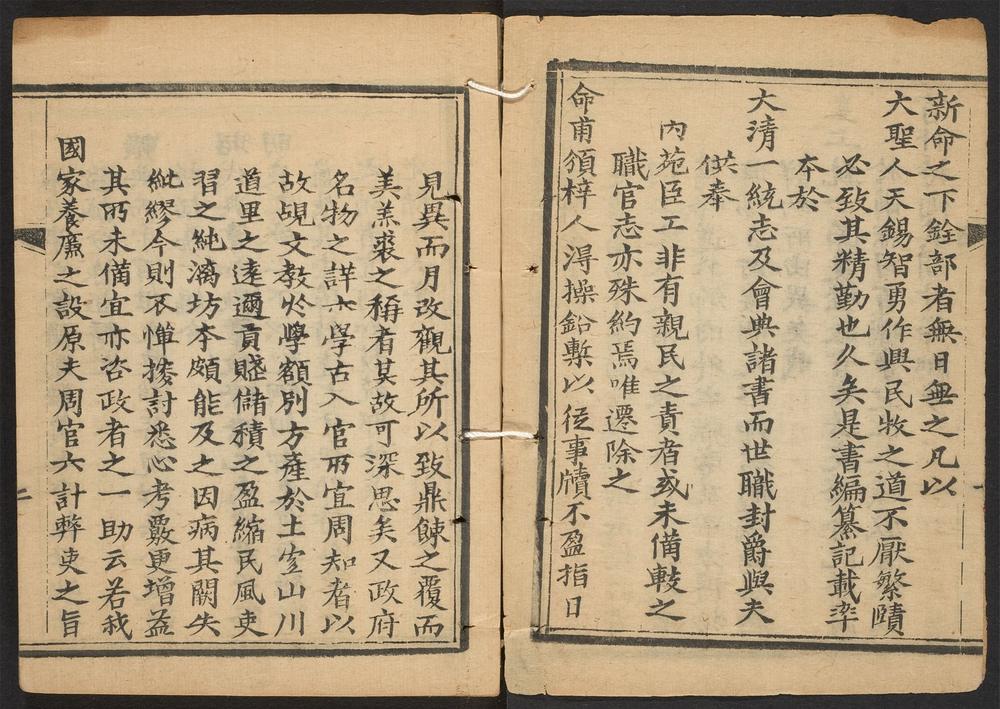 新命之下銓部者無日無之凡以
大聖人天錫智勇作興民牧之道不厭繁賾
必致其精勤也久矣是書編纂記載率
本於
大清一統志及會典諸書而世職封爵與夫
供奉
內苑臣工非有親民之責者或未備載之
職官志亦殊約焉唯遷除之
命甫頒梓人淂操鉛槧以從事牘不盈指日
見異而月改觀其所以致鼎餗之覆而
羙羔裘之稱者某故可深思矣又政府
名物之詳亦學古入官所宜周知者以
故覘文教於學額別方產於土宜山川
道里之遠邇貢賤儲積之盈縮民風吏
習之純漓坊本頗能及之因病其闕失
紕繆今則不憚摉討悉心考覈更增益
其所未備宜亦咨政者之一助云若我
國家養廉之設原夫周官六計弊吏之旨
一
二